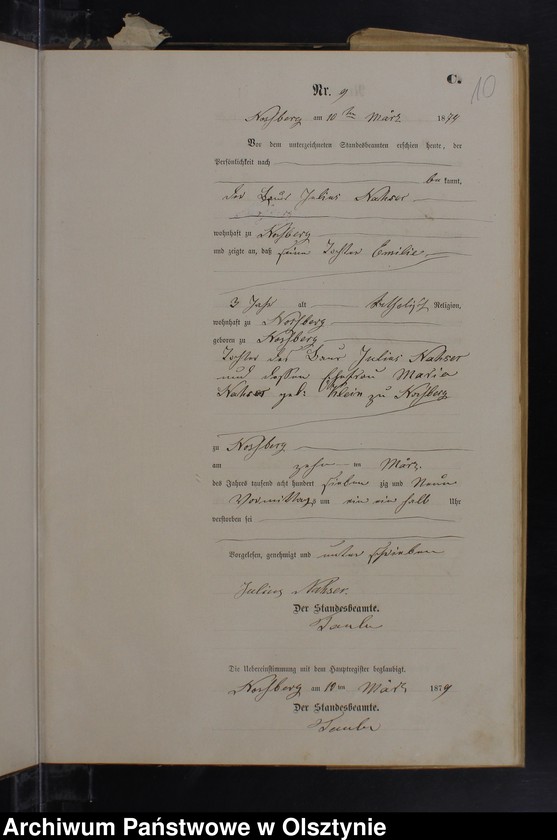 C.
10
Nr. 9
am 10ten März 1879
Vor dem unterzeichneten Standesbeamten erschien heute, der
Persönlichkeit nach
be kannt,
der Julius Nahser
wohnhaft zu
und zeigte an, daß seine Tochter Emilie
3 Jahr alt katholisch Religion,
wohnhaft zu
geboren zu
Tochter des Julius Nahser
und dessen Ehefrau Maria
Nahser geb: Klein zu
zu
am zehn ten März
des Jahres tausend acht hundert sieben zig und Neun
Vormittags um ein ein halb Uhr
verstorben sei
Vorgelesen, genehmigt und unterschrieben
Julius Nahser.
Der Standesbeamte.
Die Uebereinstimmung mit dem Hauptregister beglaubigt.
am 10 ten März 1879
Der Standesbeamte.
Archiwum Państwowe w Olsztynie